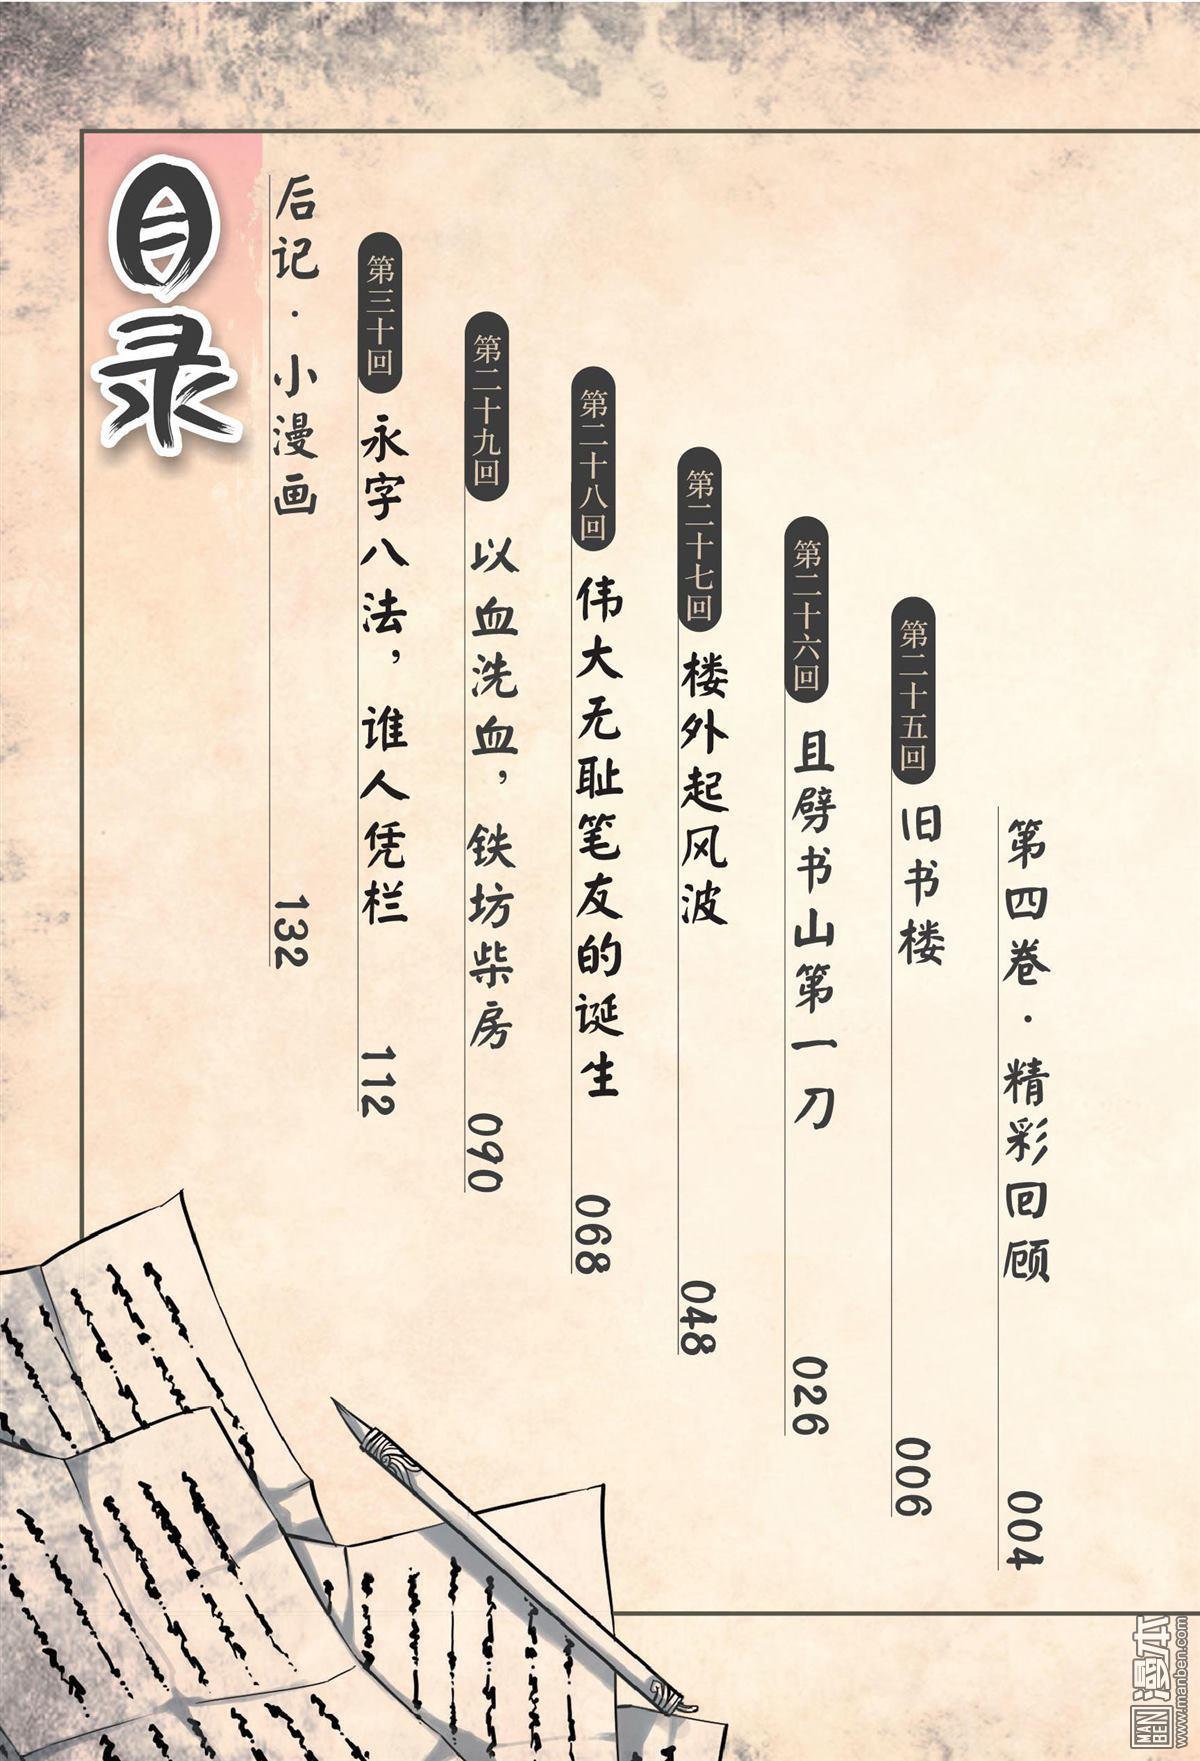 第四卷·精彩回顾 004
第二十五回 旧书楼 006
第二十六回 且劈书山第一刀 026
第二十七回 楼外起风波 048
第二十八回 伟大无耻笔友的诞生 068
第二十九回 以血洗血，铁坊柴房 090
第三十回 永字八法，谁人凭栏 112
后记·小漫画 132
目录
MAN BEN 漫本
www.manben.com